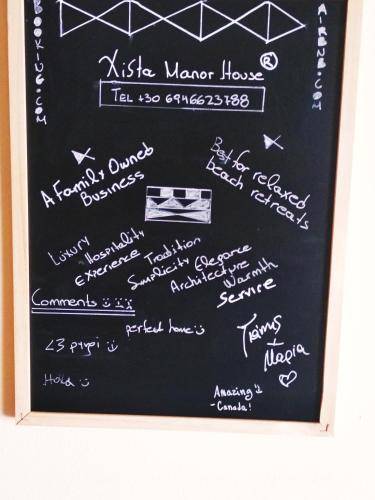 BOOKING.COM
AIRBNB.COM
Xista Manor House ®
TEL +30 6946623788
A Family Owned
Business
Best for relaxed
beach retreats
Luxury
Hospitality
Experience
Tradition
Simplicity Elegance
Architecture
Warmth
Service
Comments
perfect home
<3
Hola
+
Μαρία
Amazing
-Canada!